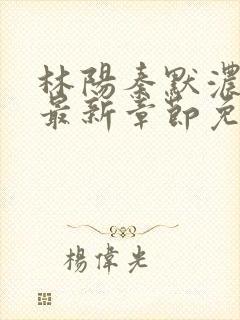 林陽秦默濃
最新章節免
楊偉光